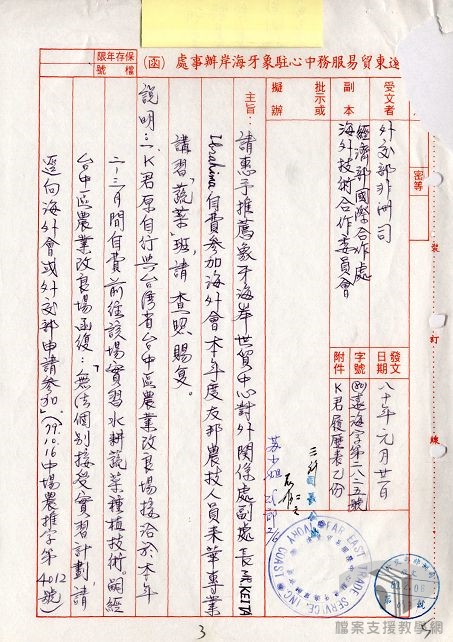 遠東貿易服務中心駐象牙海岸辦事處（函）
保存年限
檔號
密等
受文者
外交部非洲司
副本
經濟部國際合作處
海外技術合作委員會
批示或
擬辦
發文
日期
八十年元月廿一日
字號
(80)遠海字第二八三五號
附件
K君履歷表乙份
主旨：請惠予推薦象牙海岸世貿中心對外關係處副處長
Ibrahima自費參加海外會本年度友邦農技人員來華專業
講習「蔬菜班」，請 查照 賜復。
說明：一、K君原自行與台灣省台中區農業改良場接洽於本年
二、三月間自費前往該場實習水耕蔬菜種植技術。嗣經
台中區農業改良場函復：「無法個別接受實習計劃，請
逕向海外會或外交部申請參加」(79.10.16中場農推字第
4012號)
裝
訂
線
FAR EAST TRADE SERVICE, INC. IVORY COAST
3
檔案支援教學網